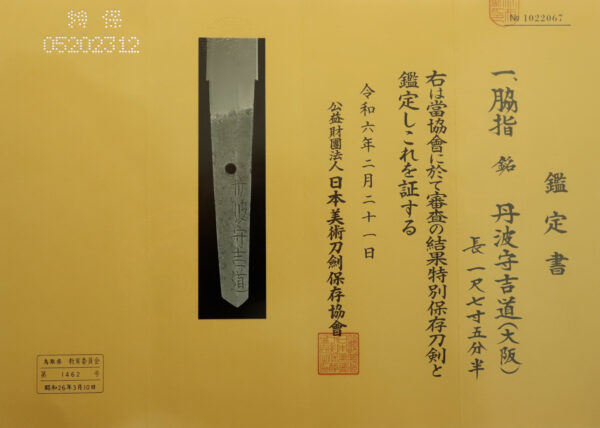 № 1022067
鑑定書
一、脇指 銘 丹波守吉道(大阪)
長 一尺七寸五分半
右は當協會に於て審査の結果特別保存刀剣と
鑑定しこれを証する
令和六年二月二十一日
公益財團法人 日本美術刀劍保存協會
丹波守吉道
特保
05202312
鳥取県 教育委員会
第 1462 号
昭和26年3月10日